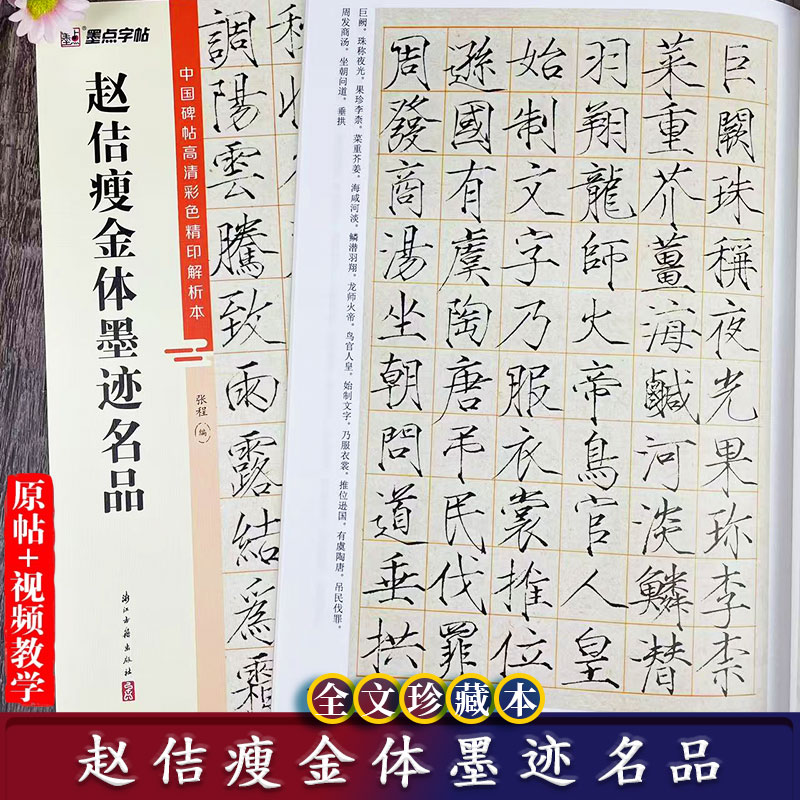 墨点字帖
赵佶瘦金体墨迹名品
中国碑帖高清彩色精印解析本
张程 编
浙江古籍出版社
調陽雲騰致雨露結爲霜
巨阙，珠称夜光。果珍李柰，菜重芥姜。海咸河淡，鳞潜羽翔。龙师火帝，鸟官人皇。始制文字，乃服衣裳。推位逊国，有虞陶唐。吊民伐罪，
周发商汤。坐朝问道，垂拱
巨闕珠稱夜光果珍李柰
菜重芥薑海鹹河淡鱗潛
羽翔龍師火帝鳥官人皇
始制文字乃服衣裳推位
遜國有虞陶唐弔民伐罪
周發商湯坐朝問道垂拱
原帖+视频教学
全文珍藏本
赵佶瘦金体墨迹名品